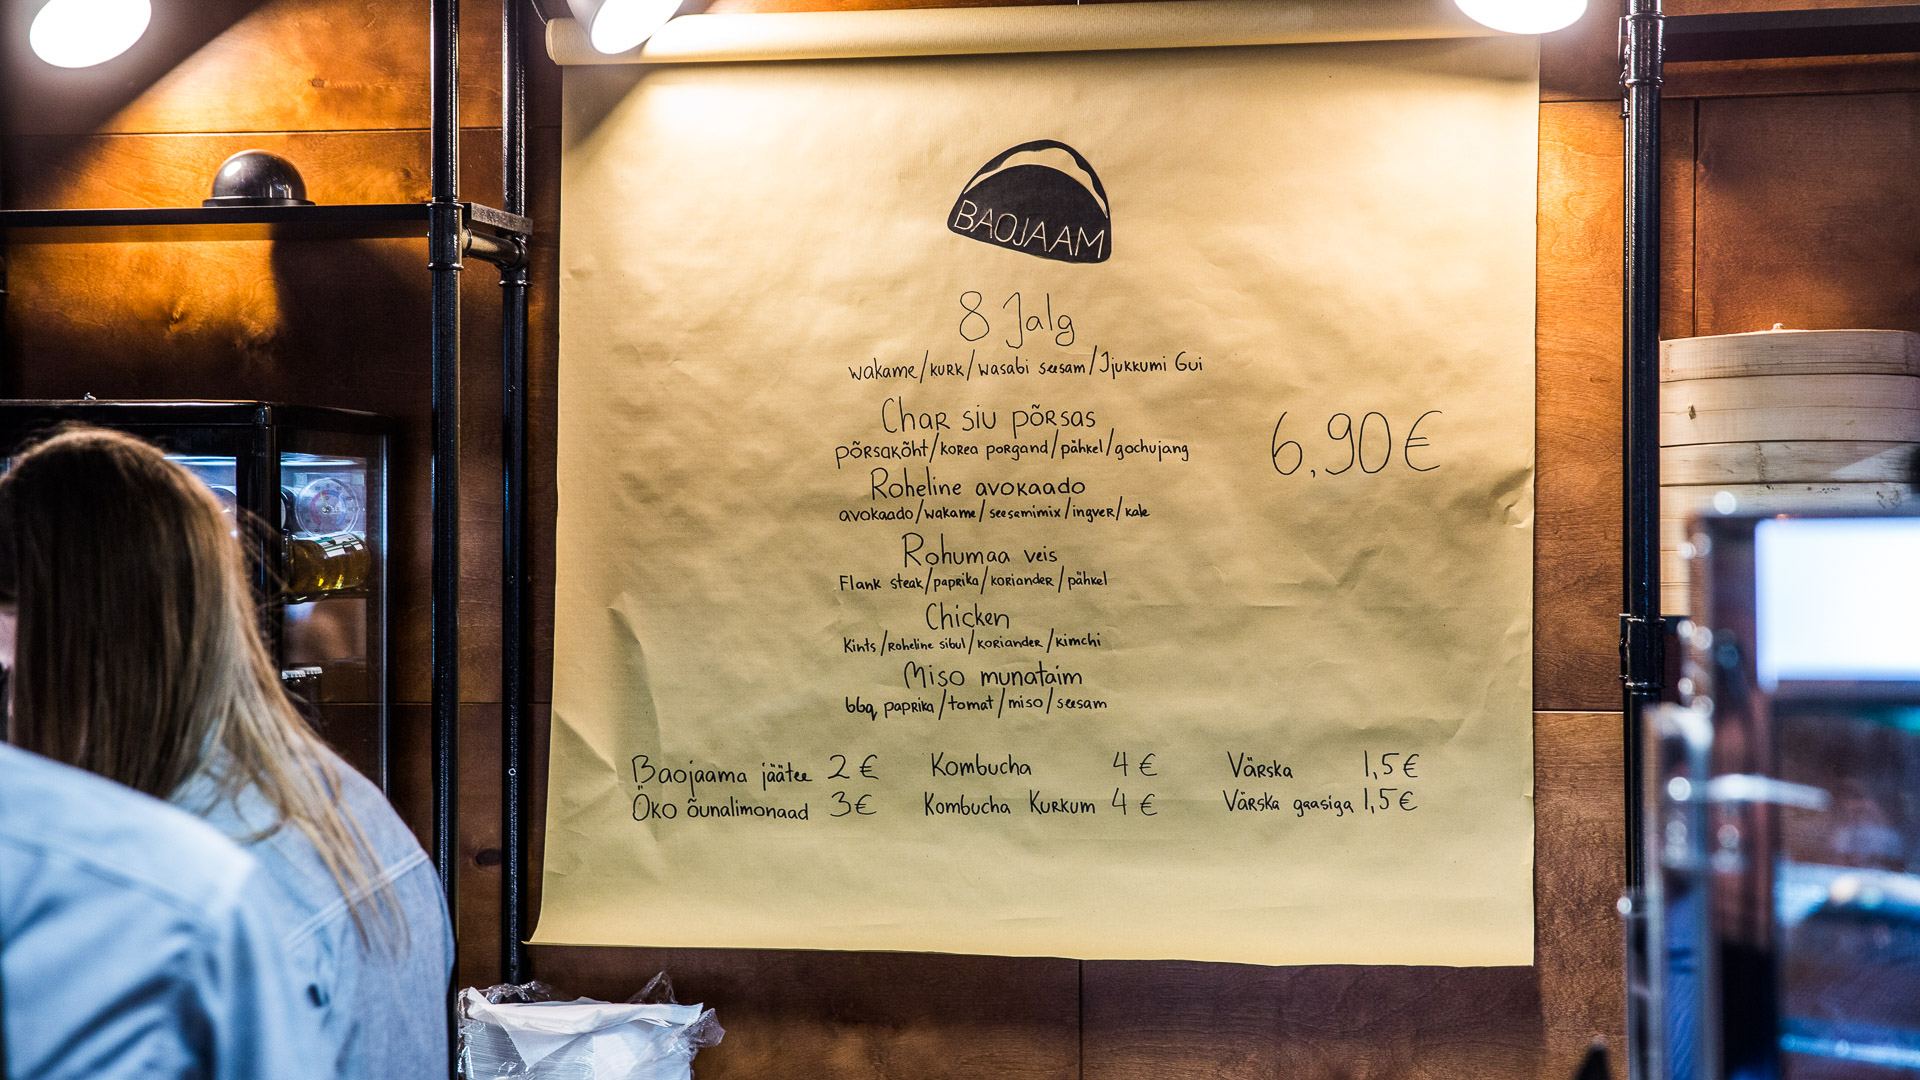 BAOJAAM
8 Jalg
wakame/kurk/wasabi seesam/Jjukkumi Gui
Char siu põrsas
põrsakõht/korea porgand/pähkel/gochujang
6,90€
Roheline avokaado
avokaado/wakame/seesamimix/ingver/kale
Rohumaa veis
Flank steak/paprika/koriander/pähkel
Chicken
Kints/roheline sibul/koriander/kimchi
Miso munataim
bbq paprika/tomat/miso/seesam
Baojaama jäätee 2€ Kombucha 4€ Värska 1,5€
Öko õunalimonaad 3€ Kombucha Kurkum 4€ Värska gaasiga 1,5€